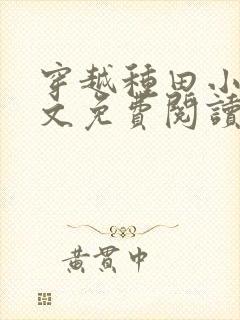 穿越種田小
文免費閱讀
黃貫中